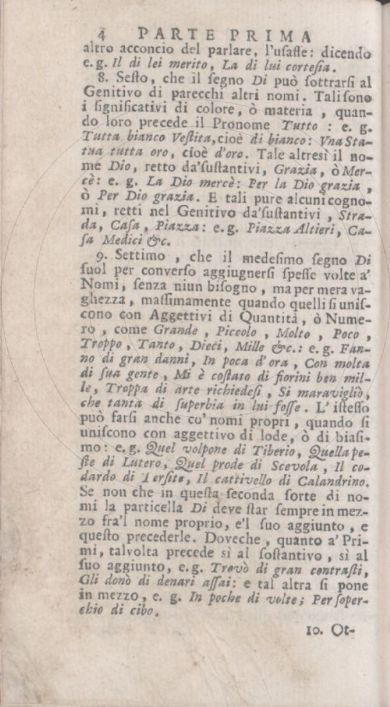 4 PARTE PRIMA
altro acconcio del parlare, l'usaste: dicendo
e. g. Il di lei merito, La di lui cortesia.
8. Sesto, che il segno Di può sottrarsi al
Genitivo di parecchi altri nomi. Tali sono
i significativi di colore, ò materia, quan-
do loro precede il Pronome Tutto : e. g.
Tutta bianco Vestita, cioè di bianco: Vna Sta-
tua tutta oro, cioè d'oro. Tale altresì il no-
me Dio, retto da'sustantivi, Grazia, ò Mer-
cè: e. g. La Dio mercè: Per la Dio grazia,
ò Per Dio grazia. E tali pure alcuni cogno-
mi, retti nel Genitivo da'sustantivi, Stra-
da, Casa, Piazza: e. g. Piazza Altieri, Ca-
sa Medici &c.
9. Settimo, che il medesimo segno Di
suol per converso aggiugnersi spesse volte a'
Nomi, senza niun bisogno, ma per mera va-
ghezza, massimamente quando quelli si unis-
cono con Aggettivi di Quantità, ò Nume-
ro, come Grande, Piccolo, Molto, Poco,
Troppo, Tanto, Dieci, Mille &c.: e. g. Fan-
no di gran danni, In poca d'ora, Con molta
di sua gente, Mi è costato di fiorini ben mil-
le, Troppa di arte richiedesi, Si maravigliò,
che tanta di superbia in lui fosse. L'istesso
può farsi anche cu'nomi propri, quando si
uniscono con aggettivo di lode, ò di biasi-
mo: e. g. Quel volpone di Tiberio, Quella pe-
ste di Lutero, Quel prode di Scevola, Il co-
dardo di Tersite, Il cattivello di Calandrino.
Se non che in questa seconda sorte di no-
mi la particella Di deve star sempre in mez-
zo fra'l nome proprio, e'l suo aggiunto, e
questo precederle. Doveche, quanto a'Pri-
mi, talvolta precede sì al sostantivo, sì al
suo aggiunto, e. g. Trovò di gran contrasti,
Gli donò di denari assai: e tal altra si pone
in mezzo, e. g. In poche di volte; Per soper-
chio di cibo.
10. Ot-